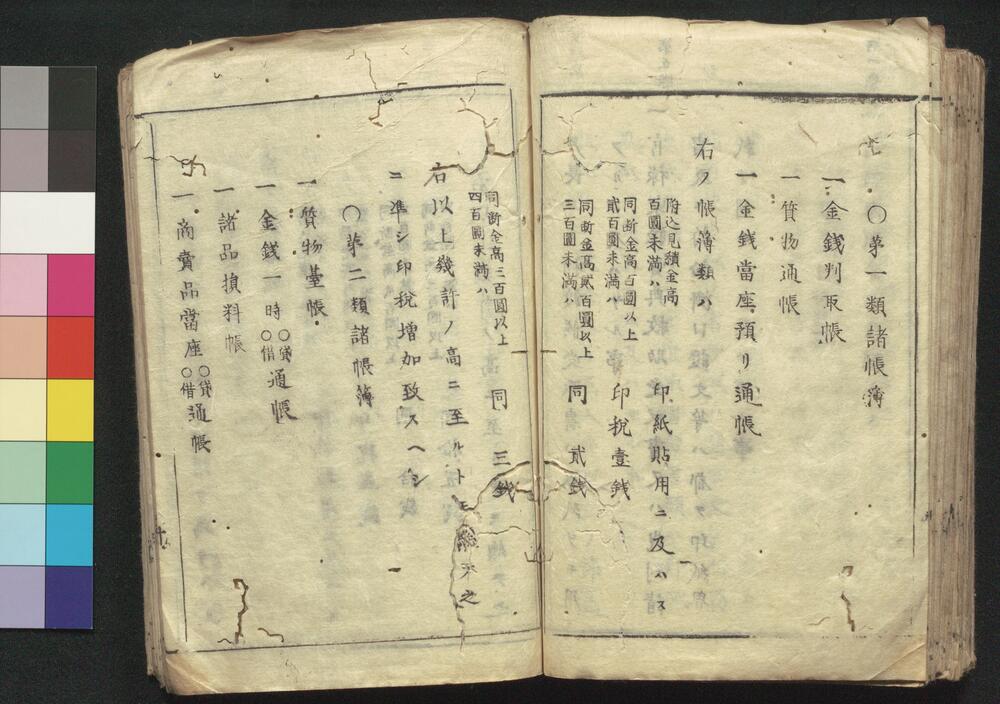 〇第一類諸帳簿
一金銭判取帳
一質物通帳
一金銭當座預リ通帳
右ノ帳簿類ハ
附込見積金高
百圓未満ハ
印紙貼用ニ及ハス
同断金高百圓以上
貳百圓未満ハ
印税壹銭
同断金高貳百圓以上
三百圓未満ハ
同 貳銭
同断金高三百圓以上
四百圓未満ハ
同 三銭
右以上幾許ノ高ニ至ルトモ総テ之
ニ準シ印税増加致スヘシ
〇第二類諸帳簿
一質物臺帳
一金銭一時〇貸〇借通帳
一諸品損料帳
一商賣品當座〇貸〇借通帳